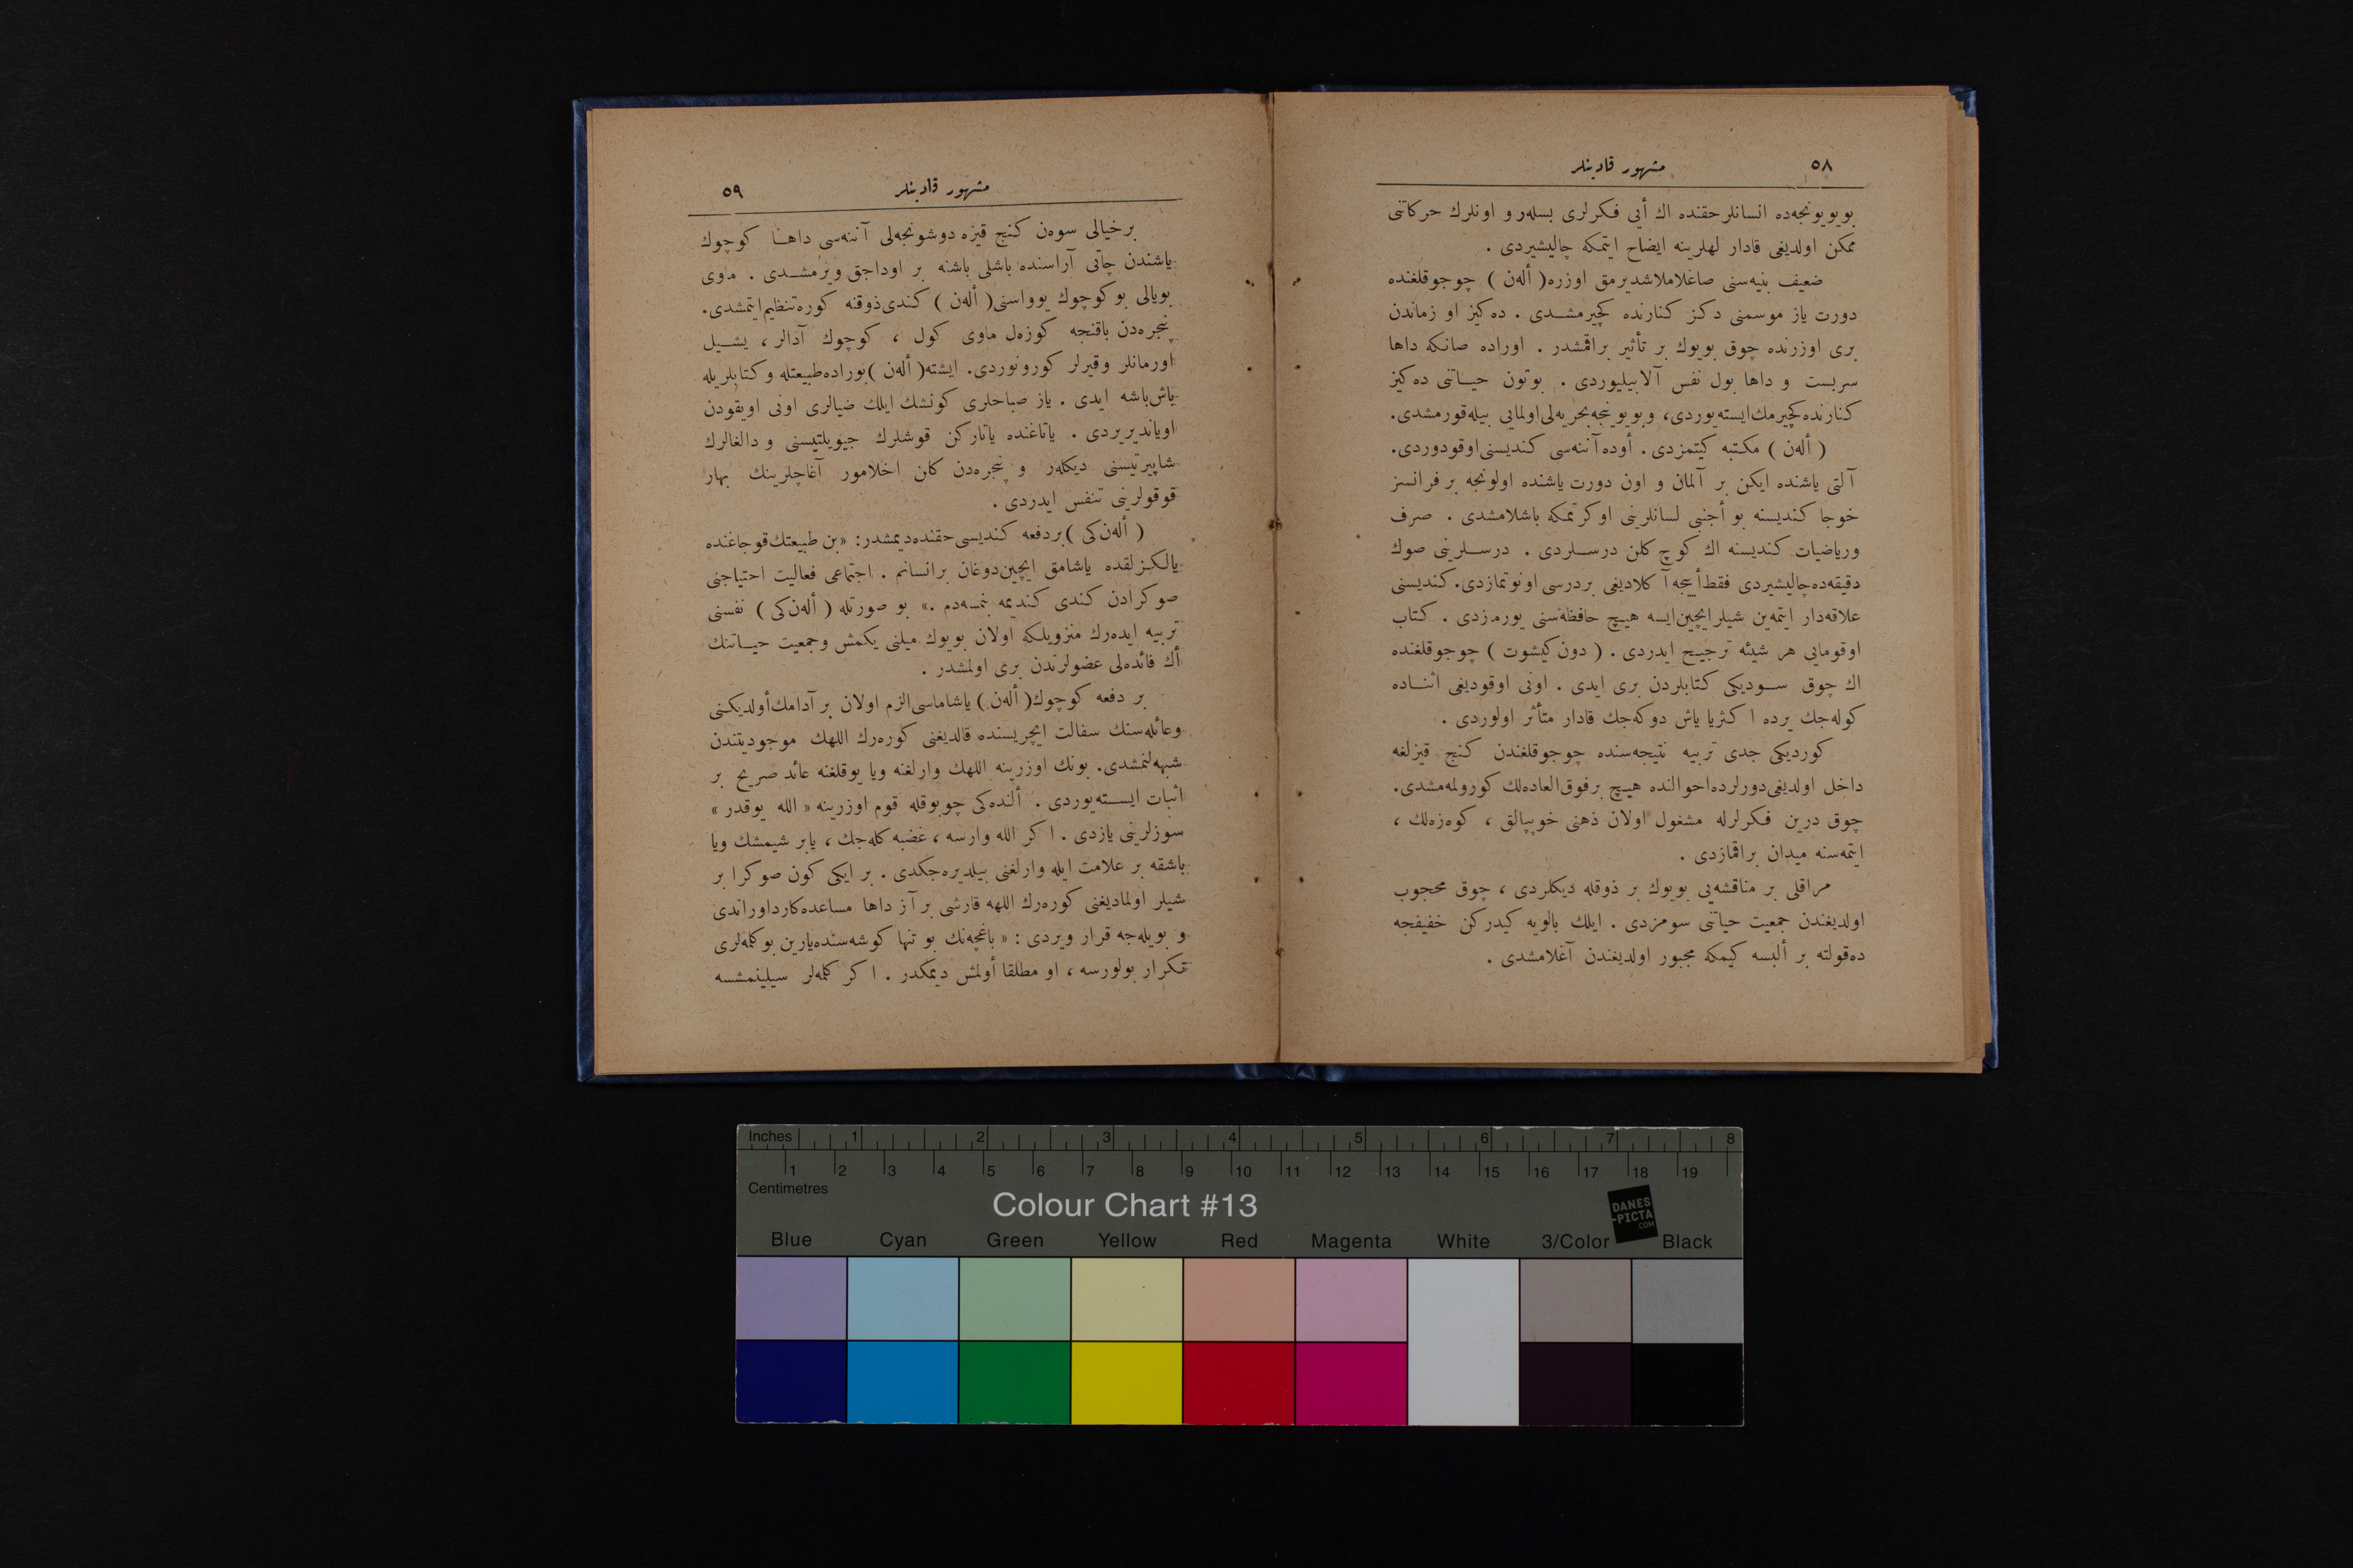 ٥٨
مشهور قادینلر
بویویونجه‌ده انسانلر حقنده اك أیی فكرلری بسله‌ر و اونلرك حركاتنی
ممكن اولدیغی قادار لهلرینه ایضاح ایتمكه چالیشیردی .
ضعیف بنیه‌سنی صاغلاملاشدیرمق اوزره ( أله‌ن ) چوجوقلغنده
دورت یاز موسمنی دكز كنارنده كچیرمشدی . ده‌كیز او زماندن
بری اوزرنده چوق بویوك بر تأثیر براقمشدر . اوراده صانكه داها
سربست و داها بول نفس آلابیلیوردی . بوتون حیاتنی ده‌كیز
كنارنده كچیرمك ایسته‌یوردی، و بویونجه بحریه‌لی اولمایی بیله قورمشدی.
( أله‌ن ) مكتبه كیتمزدی . أوده آننه‌سی كندیسنی اوقودوردی.
آلتی یاشنده ایكن بر آلمان و اون دورت یاشنده اولونجه بر فرانسز
خوجا كندیسنه بو أجنبی لسانلرینی اوكرتمكه باشلامشدی . صرف
وریاضیات كندیسنه اك كوچ كلن درسلردی . درسلرینی صوك
دقیقه‌ده چالیشیردی فقط أییجه آ كلادیغی بردرسی اونوتمازدی. كندیسنی
علاقه‌دار ایتمه‌ین شیلر ایچین ایسه هیچ حافظه‌سنی یورمزدی . كتاب
اوقومایی هر شیئه ترجیح ایدردی . ( دون كیشوت ) چوجوقلغنده
اك چوق سودیكی كتابلردن بری ایدی . اونی اوقودیغی اثناده
كوله‌جك یرده ا كثریا یاش دوكه‌جك قادار متأثر اولوردی .
كوردیكی جدی تربیه نتیجه‌سنده چوجوقلغندن كنج قیزلغه
داخل اولدیغی دورلرده احوالنده هیچ برفوق‌العاده‌لك كورولمه‌مشدی.
چوق درین فكرلرله مشغول اولان ذهنی خوپپالق ، كوه‌زه‌لك ،
ایتمه‌سنه میدان براقمازدی .
مراقلی بر مناقشه‌یی بویوك بر ذوقله دیكلردی ، چوق محجوب
اولدیغندن جمعیت حیاتنی سومزدی . ایلك بالویه كیدركن خفیفجه
ده‌قولته بر ألبسه كیمكه مجبور اولدیغندن آغلامشدی .
مشهور قادینلر
٥٩
برخیالی سوه‌ن كنج قیزه دوشونجه‌لی آننه‌سی داها كوچوك
یاشندن چاتی آراسنده باشلی باشنه بر اوداجق ویرمشدی . ماوی
بویالی بو كوچوك یوواسنی ( أله‌ن ) كندی ذوقنه كوره تنظیم ایتمشدی.
پنجره‌دن باقنجه كوزه‌ل ماوی كول ، كوچوك آدالر ، یشیل
اورمانلر وقیرلر كورونوردی. ایشته ( أله‌ن ) بوراده طبیعتله و كتابلریله
باش باشه ایدی . یاز صباحلری كونشك ایلك ضیالری اونی اویقودن
اویاندیریردی . یاتاغنده یاتاركن قوشلرك جیویلتیسنی و دالغالرك
شاپیرتیسنی دیكله‌ر و پنجره‌دن كلن اخلامور آغاچلرینك بهار
قوقولرینی تنفس ایدردی .
( أله‌ن كی ) بردفعه كندیسی حقنده دیمشدر: «بن طبیعتك قوجاغنده
یالكزلقده یاشامق ایچین دوغان برانسانم . اجتماعی فعالیت احتیاجنی
صوكرادن كندی كندیمه بنمسه‌دم .» بو صورتله ( أله‌ن كی ) نفسنی
تربیه ایده‌رك منزویلكه اولان بویوك میلنی یكمش و جمعیت حیاتنك
أك فائده‌لی عضولرندن بری اولمشدر .
بر دفعه كوچوك ( أله‌ن ) یاشاماسی الزم اولان بر آدامك أولدیكنی
وعائله‌سنك سفالت ایچریسنده قالدیغنی كوره‌رك اللهك موجودیتندن
شبهه‌لنمشدی. بونك اوزرینه اللهك وارلغنه ویا یوقلغنه عائد صریح بر
اثبات ایسته‌یوردی . ألنده‌كی چوبوقله قوم اوزرینه « الله یوقدر »
سوزلرینی یازدی . ا كر الله وارسه ، غضبه كله‌جك ، یا بر شیمشك ویا
باشقه بر علامت ایله وارلغنی بیلدیره‌جكدی . بر ایكی كون صوكرا بر
شیلر اولمادیغنی كوره‌رك اللهه قارشی بر آز داها مساعده‌كار داوراندی
و بویله‌جه قرار ویردی : « باغچه‌نك بو تنها كوشه‌سنده یارین بو كلمه‌لری
تكرار بولورسه ، او مطلقا أولمش دیمكدر . ا كر كلمه‌لر سیلینمشسه
Inches 1 2 3 4 5 6 7 8
1 2 3 4 5 6 7 8 9 10 11 12 13 14 15 16 17 18 19
Centimetres
Colour Chart #13
DANES
-PICTA
.COM
Blue Cyan Green Yellow Red Magenta White 3/Color Black